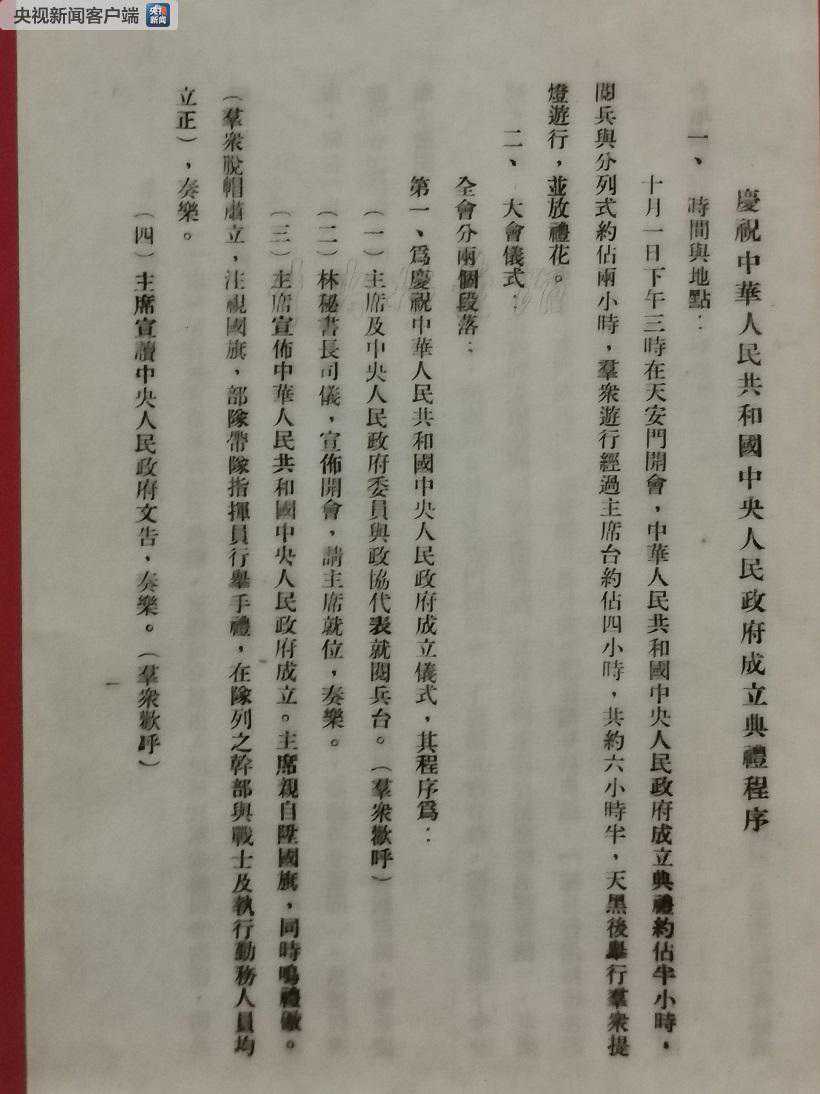 央视新闻客户端 央视新闻
慶祝中華人民共和國中央人民政府成立典禮程序
一、時間與地點：
十月一日下午三時在天安門開會，中華人民共和國中央人民政府成立典禮約佔半小時，
閱兵與分列式約佔兩小時，羣衆遊行經過主席台約佔四小時，共約六小時半，天黑後舉行羣衆提
燈遊行，並放禮花。
二、大會儀式：
全會分兩個段落：
第一、爲慶祝中華人民共和國中央人民政府成立儀式，其程序爲：
（一）主席及中央人民政府委員與政協代表就閱兵台。（羣衆歡呼）
（二）林秘書長司儀，宣佈開會，請主席就位，奏樂。
（三）主席宣佈中華人民共和國中央人民政府成立。主席親自陞國旗，同時鳴禮礮。
（羣衆脫帽肅立，注視國旗，部隊帶隊指揮員行舉手禮，在隊列之幹部與戰士及執行勤務人員均
立正），奏樂。
（四）主席宣讀中央人民政府文告，奏樂。（羣衆歡呼）
一